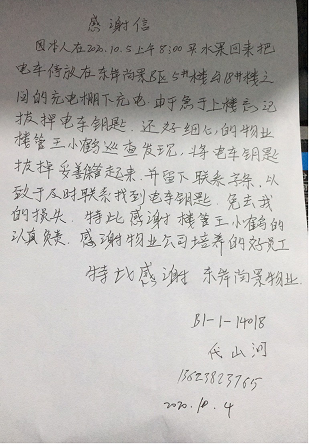 感谢信
因本人在2020.10.5上午8:00买水果回来把
电车停放在东岸尚景B区5#楼与18#楼之
间的充电棚下充电.由于急于上楼忘记
拔掉电车钥匙.还好细心的物业
楼管王小鹤巡查发现,将电车钥匙
拔掉妥善保管起来.并留下联系字条,以
致于及时联系找到电车钥匙.免去我
的损失.特此感谢楼管王小鹤的
认真负责.感谢物业公司培养的好员工
特此感谢 东岸尚景物业.
B1-1-14018
代山河
13623823765
2020.10.4